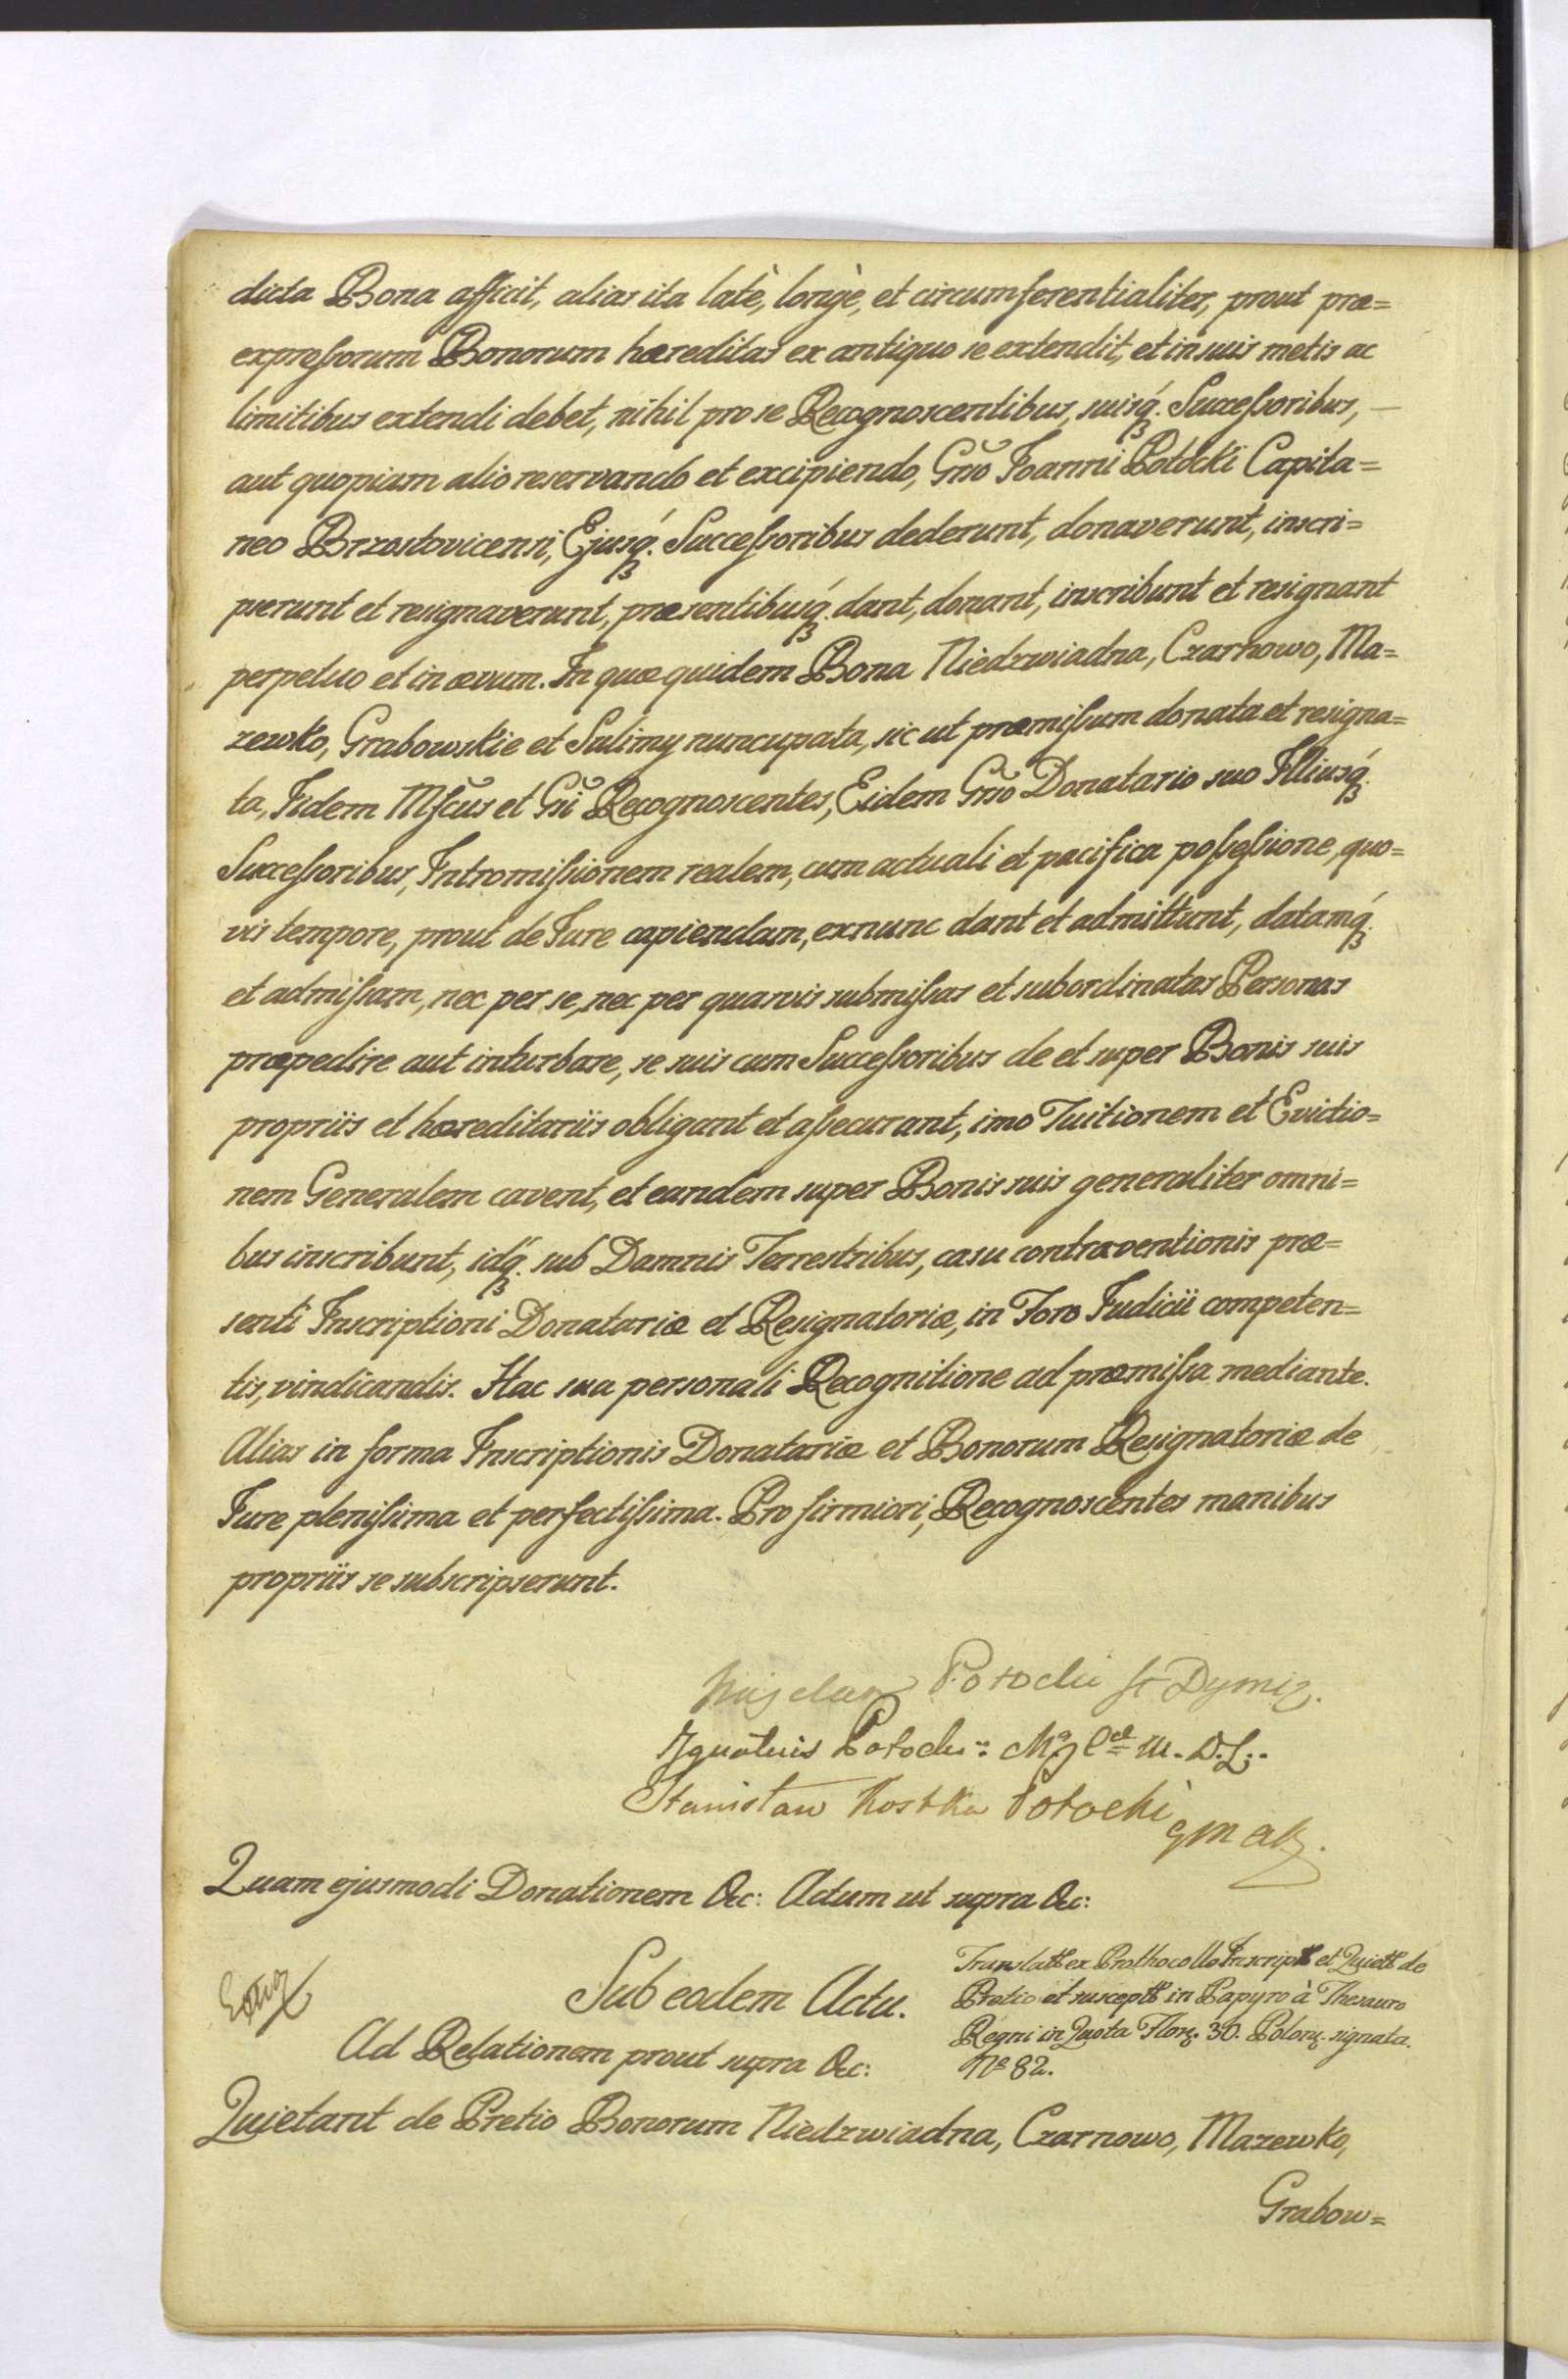 dicta Bona afficit, alias ita latè, longè, et circumferentialiter, prout præ=
expreſsorum Bonorum hæreditas ex antiquo se extendit, et in suis metis ac
limitibus extendi debet, nihil pro se Recognoscentibus, suisq́ꝫ. Succeſsoribus, —
aut quopiam alio reservando et excipiendo, Gn̆o Joanni Potocki Capita=
neo Brzostovicensi, Ejusq́ꝫ. Succeſsoribus dederunt, donaverunt, inscri=
pserunt et resignaverunt, præsentibusq́ꝫ. dant, donant, inscribunt et resignant
perpetuo et in ævum. In quæ quidem Bona Niedzwiadna, Czarnowo, Ma=
zewko, Grabowskie et Sulimy nuncupata, sic ut præmiſsum donata et resigna=
ta, Iidem Mſcus et Gn̆i Recognoscentes, Eidem Gn̆o Donatario suo Illiusq́ꝫ.
Succeſsoribus, Intromiſsionem realem, cum actuali et pacifica poſseſsione, quo=
vis tempore, prout de Jure capiendam, exnunc dant et admittunt, datamq́ꝫ.
et admiſsam, nec per se, nec per quasvis submiſsas et subordinatas Personas
præpedire aut inturbare, se suis cum Succeſsoribus de et super Bonis suis
propriis et hæreditariis obligant et aſsecurant, imo Tuitionem et Evictio=
nem Generalem cavent, et eandem super Bonis suis generaliter omni=
bus inscribunt, idq́ꝫ. sub Damnis Terrestribus, casu contraventionis præ=
senti Inscriptioni Donatariæ et Resignatoriæ, in Foro Judicii competen=
tis, vindicandis. Hac sua personali Recognitione ad præmiſsa mediante.
Alias in forma Inscriptionis Donatariæ et Bonorum Resignatoriæ de
Jure pleniſsima et perfectiſsima. Pro firmiori, Recognoscentes manibus
propriis se subscripserunt.
Potocki St Dymiz.
Ignatius Potocki M. D. L.
Stanisław Kostka Potocki
Quam ejusmodi Donationem &c: Actum ut supra &c:
Sub eodem Actu.
Translatt ex Prothocollo Inscriptt et Quiett de
Pretio et susceptt in Papyro à Thesauro
Regni in Quota Florꝫ. 30. Polonꝫ. signata.
Nº 82.
Ad Relationem prout supra &c:
Quietant de Pretio Bonorum Niedzwiadna, Czarnowo, Mazewko,
Grabow=